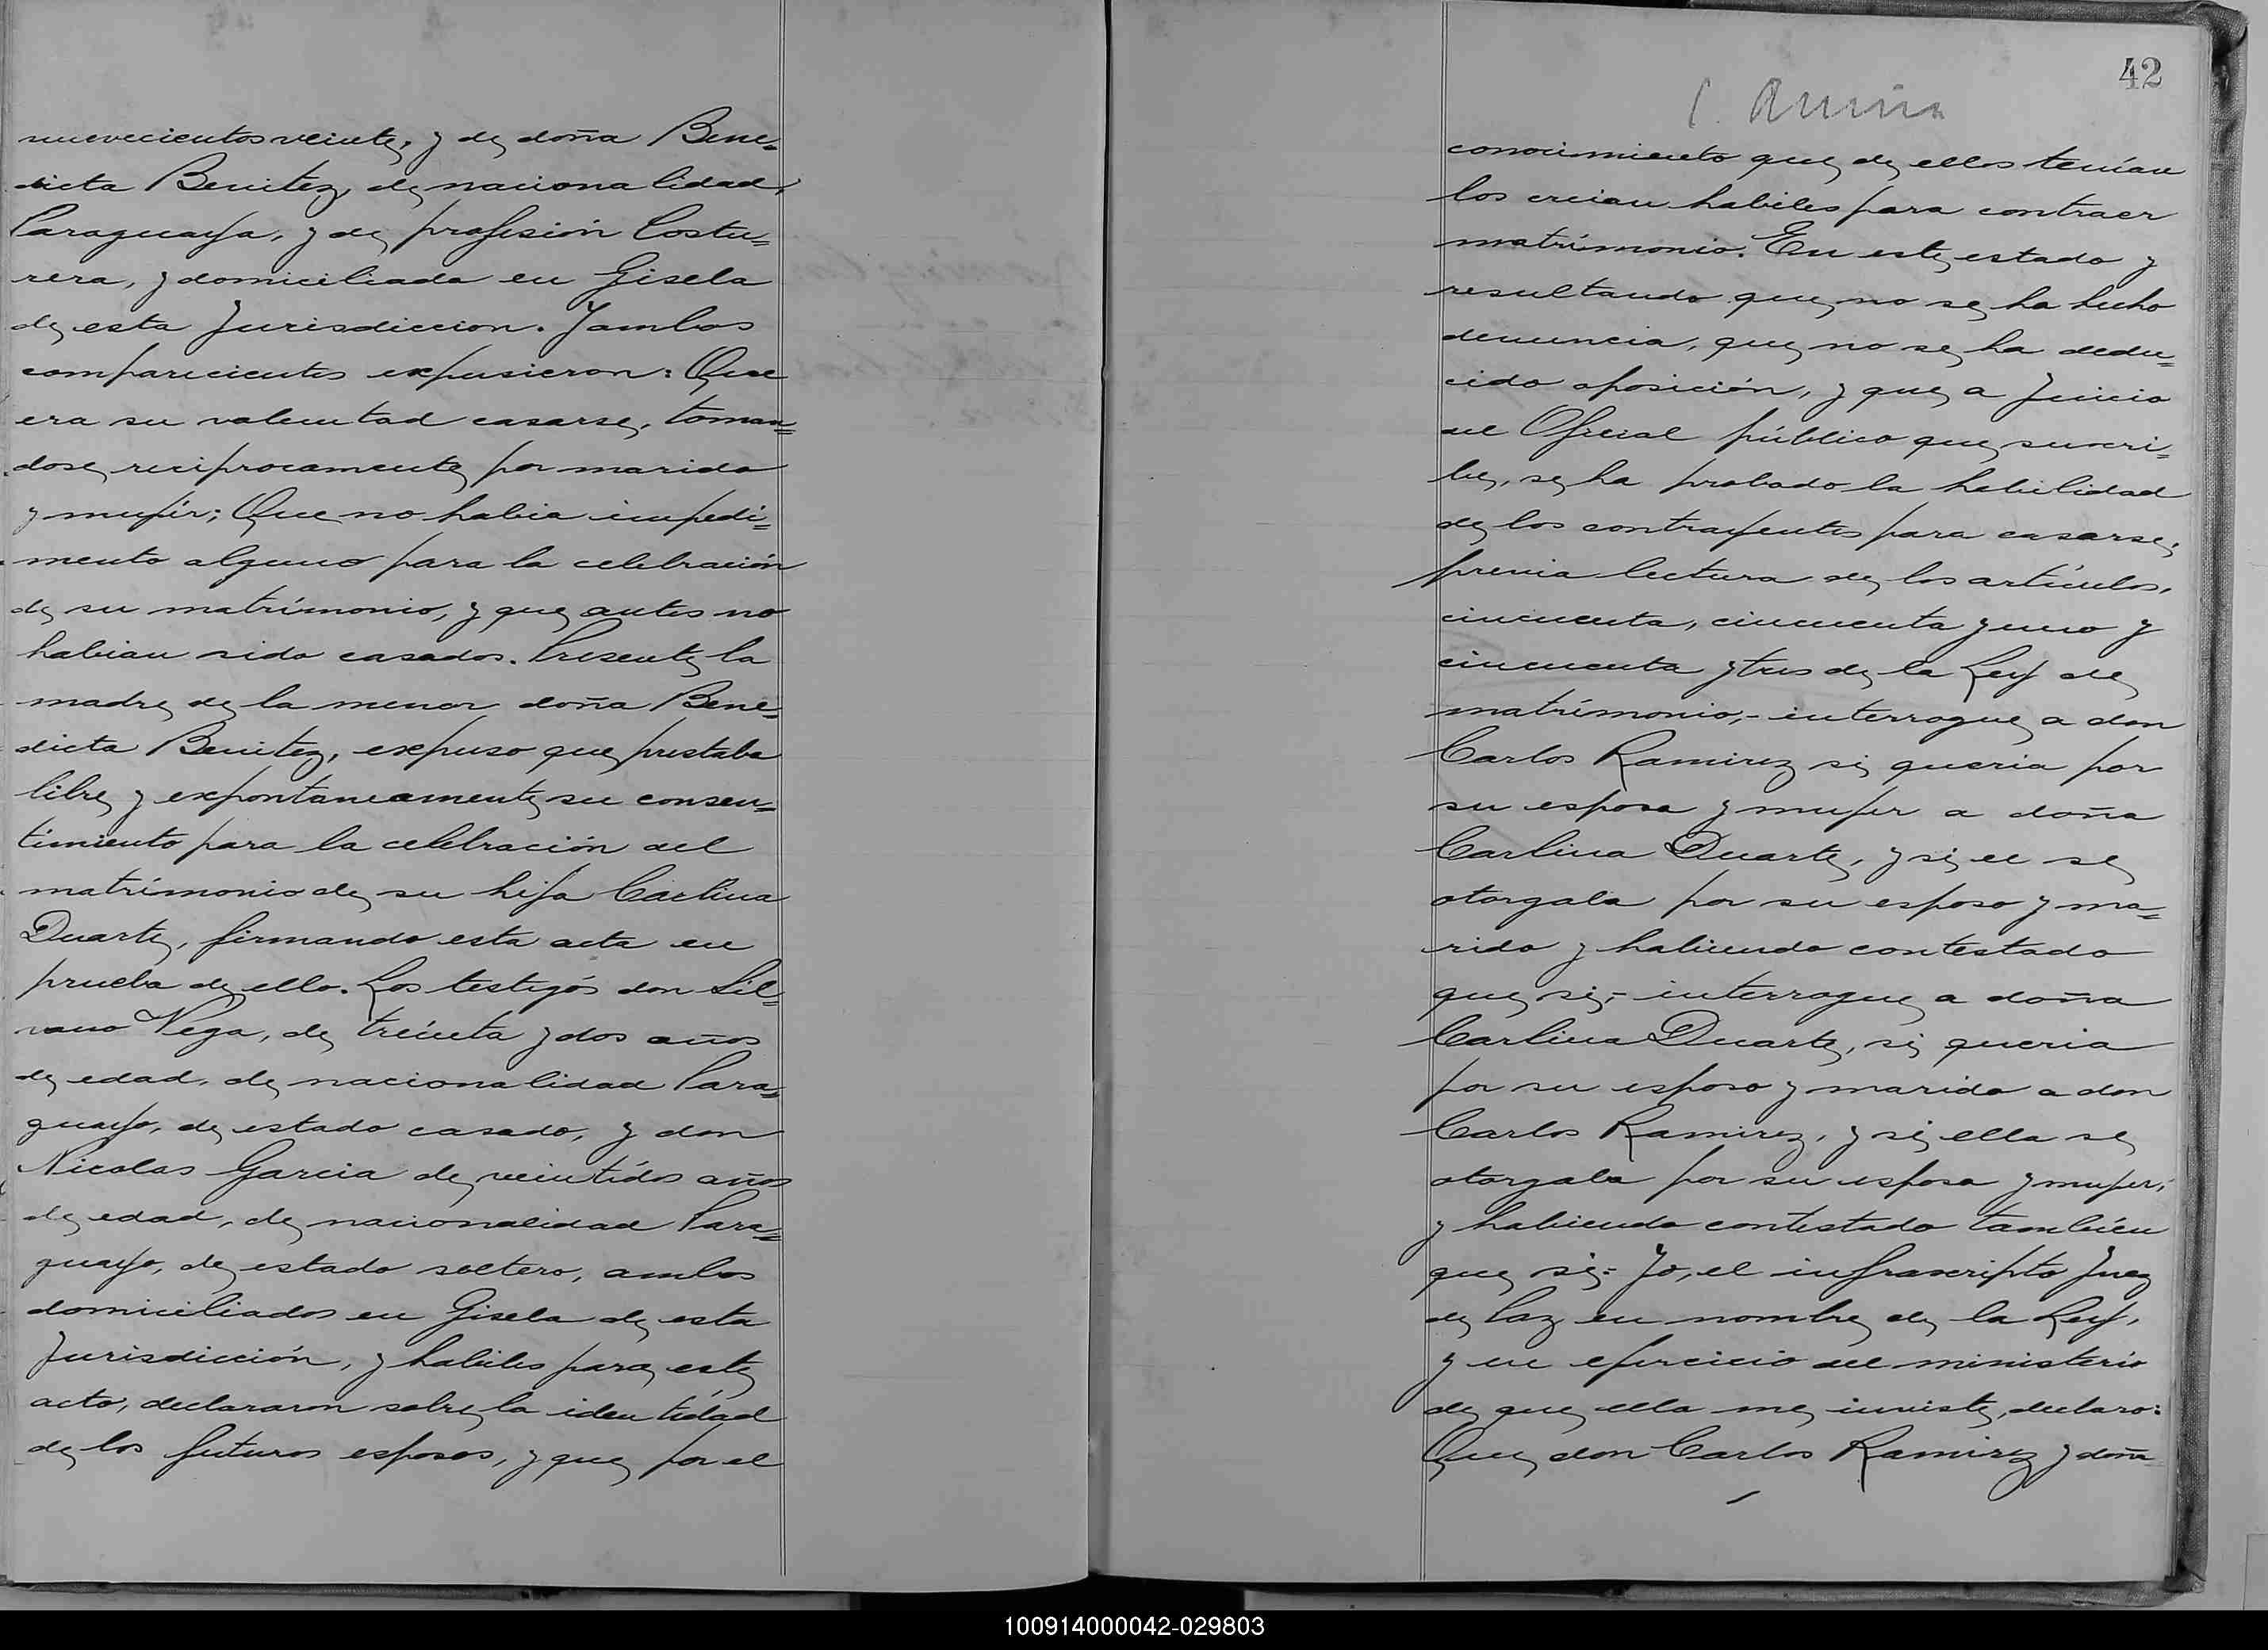 nuevecientos veinte, y de doña Bene=
dicta Benitez, de nacionalidad,
Paraguaya, y de profesión Costu=
rera, y domiciliada en Gisela
de esta Jurisdiccion. Y ambos
comparecientes expusieron: Que
era su voluntad casarse, toman=
dose reciprocamente por marido
y mujer; Que no habia impedi=
mento alguno para la celebración
de su matrimonio, y que antes no
habian sido casados. Presente la
madre de la menor doña Bene=
dicta Benitez, expuso que prestaba
libre y expontaneamente su consen=
timiento para la celebración del
matrimonio de su hija Carlina
Duarte, firmando esta acta en
prueba de ello. Los testigos don Sil=
vano Vega, de treinta y dos años
de edad, de nacionalidad Para=
guayo, de estado casado, y don
Nicolas Garcia de veintidos años
de edad, de nacionalidad Para=
guayo, de estado soltero, ambos
domiciliados en Gisela de esta
Jurisdicción, y habiles para este
acto, declararon sobre la identidad
de los futuros esposos, y que por el
42
conocimiento que de ellos tenían
los creian habiles para contraer
matrimonio. En este estado y
resultando que no se ha hecho
denuncia, que no se ha dedu=
cido oposición, y que a Juicio
del Oficial público que suscri=
be, se ha probado la habilidad
de los contrayentes para casarse,
previa lectura de los artículos,
cincuenta, cincuenta y uno y
cincuenta y tres de la Ley de
matrimonio,- interrogue a don
Carlos Ramirez si queria por
su esposa y mujer a doña
Carlina Duarte, y si el se
otorgaba por su esposo y ma=
rido y habiendo contestado
que si,- interrogue a doña
Carlina Duarte, si queria
por su esposo y marido a don
Carlos Ramirez, y si ella se
otorgaba por su esposa y mujer,
y habiendo contestado también
que si;= Yo, el infrascripto Juez
de Paz en nombre de la Ley,
y en ejercicio del ministerio
de que ella me inviste, declaro:
Que, don Carlos Ramirez y doña
100914000042-029803